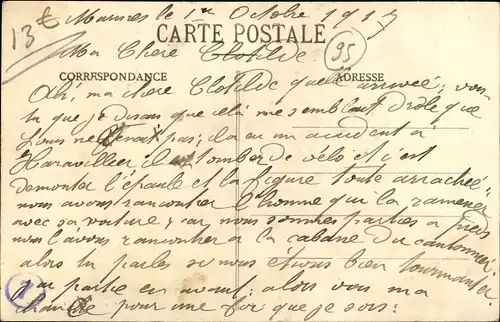 13€
Marines le 1er Octobre 1917
CARTE POSTALE
Ma Chere Clotilde.
95
CORRESPONDANCE
ADRESSE
Ah, ma chere Clotilde quelle arrivée; vous
tu que je disais que cela me semblait drôle que
Louis ne venait pas; il a eu un accident à
Haravilliers il est tomber de vélo et c'est
demonter l'épaule et la figure toute arrachée
nous avons rancontrer l'homme qui la ramener
avec sa voiture; car nous sommes parties a pieds
nous l'avons rancontrer a la cabane du cantonnier
alors tu parles si nous étions bien tourmanter
en avant. alors vous ma
pour une foi que je sors:
1